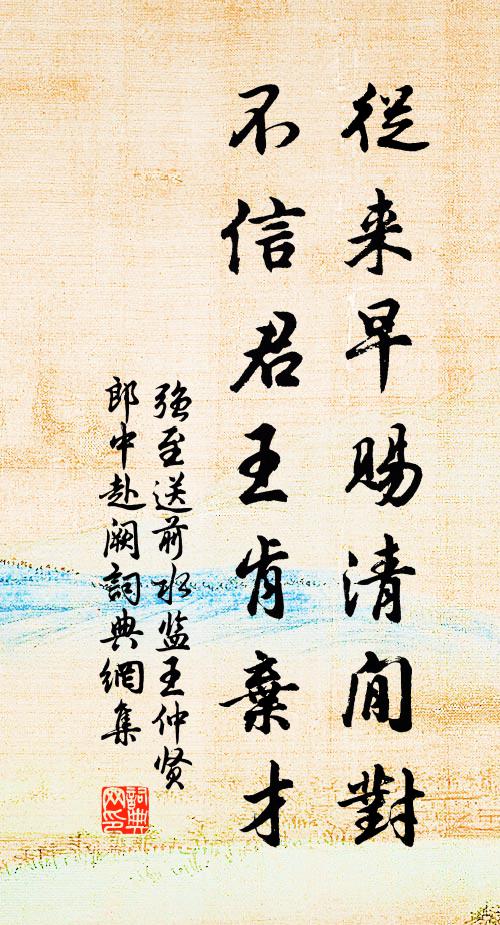 從来早賜清閒對
不信君王肯棄才
强至送前水监王仲贤
郎中赴阙詞典網集
詞典網印